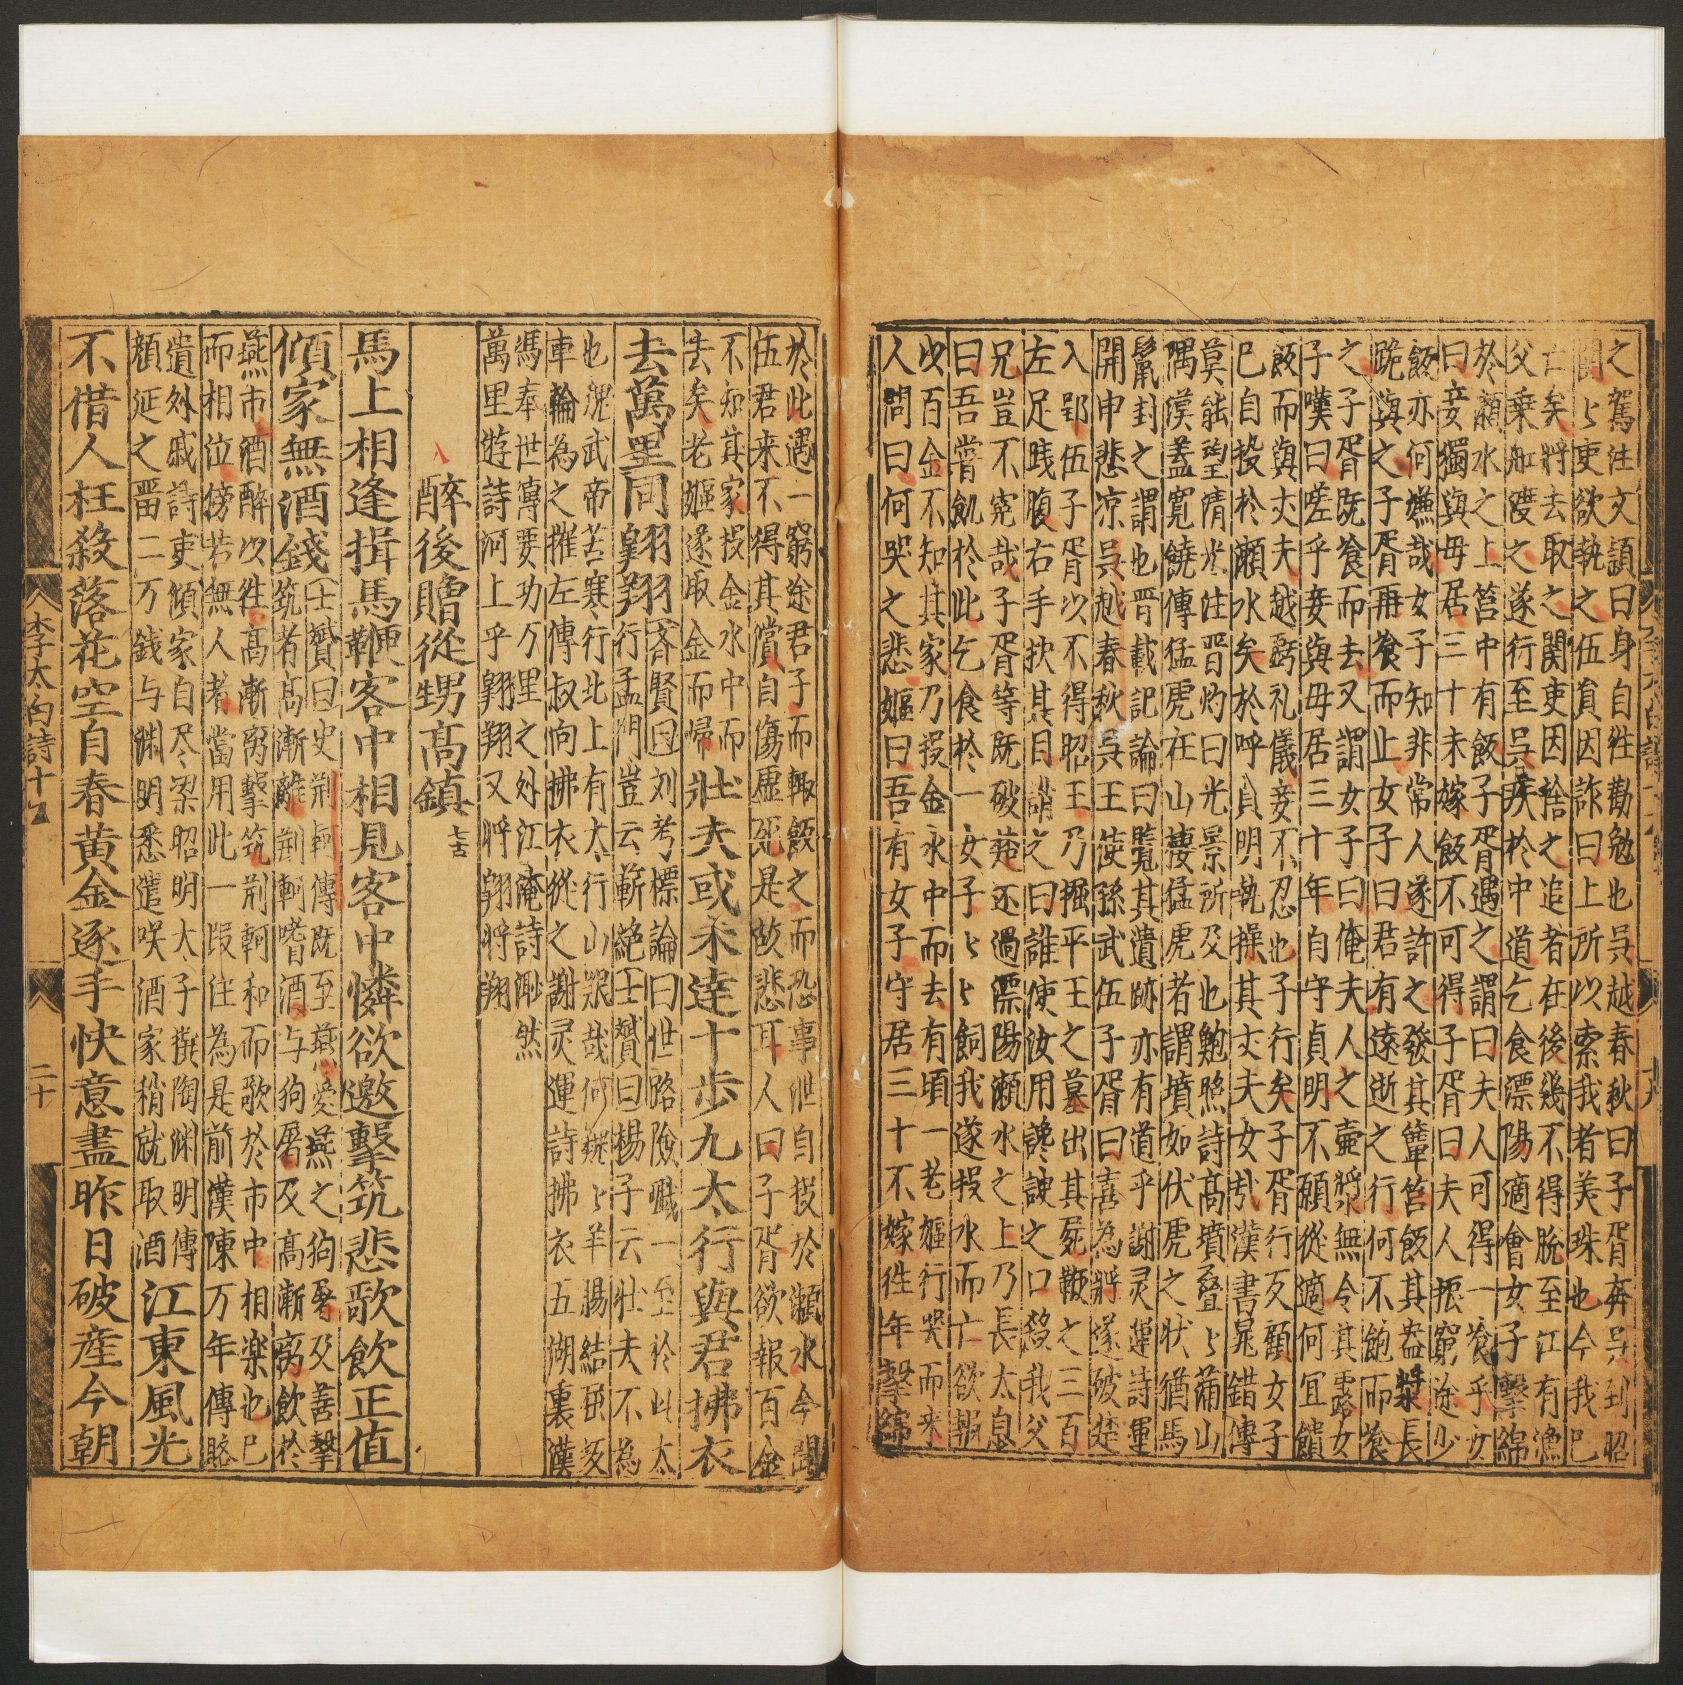 之駕注文穎曰身自徃勸勉也吳越春秋曰子胥奔吳到昭
関〻吏欲執之伍貟因詐曰上所以索我者美珠也今我已
亡矣將去取之関吏因捨之追者在後幾不得脫至江有漁
父乗舡渡之遂行至吳疾於中道乞食漂陽適會女子擊綿
於瀬水之上筥中有飯子胥遇之謂曰夫人可得一飡乎女
曰妾獨與毋居三十未嫁飯不可得子胥曰夫人賑窮途少
飯亦何嫌哉女子知非常人遂許之發其簞筥飯其盎漿長
跪與之子胥再飡而止女子曰君有遠逝之行何不飽而飡
之子胥既飡而去又謂女子曰俺夫人之壷漿無令其露女
子嘆曰嗟乎妾與毋居三十年自守貞明不願從適何冝饋
飯而與丈夫越虧礼儀妾不忍也子行矣子胥行反顧女子
已自投於瀬水矣於呼貞明執操其丈夫女㢤漢書晁錯傳
莫能望清光注晋灼曰光景所及也鮑照詩高墳叠〻蒲山
隅漢蓋寛饒傳猛虎在山棲猛虎者謂墳如伏虎之狀猶馬
鬛封之謂也晋載記論曰覧其遺跡亦有道乎謝灵運詩運
開申悲凉吳越春秋吳王使孫武伍子胥曰喜為將遂破楚
入郢伍子胥以不得昭王乃掘平王之墓出其屍鞭之三百
左足踐腹右手抉其目誚之曰誰使汝用讒諛之口殺我父
兄豈不寃哉子胥等既破楚还過漂陽瀬水之上乃長太息
曰吾甞飢於此乞食於一女子〻〻飼我遂投水而亡欲報
以百金不知其家乃投金水中而去有頃一老嫗行哭而来
人問曰何哭之悲嫗曰吾有女子守居三十不嫁徃年擊綿
於此遇一窮途君子而輙飯之而恐事泄自投於瀬水今聞
伍君来不得其償自傷虛死是故悲耳人曰子胥欲報百金
不知其家投金水中而
去矣老嫗遂取金而帰 壯夫或未逹十歩九太行與君拂衣
去萬里同翺翔 斉賢曰刘孝標論曰世路険巇一至於此太
行孟門豈云嶄絶士贇曰楊子云壮夫不為
也魏武帝苦寒行北上有太行山艱哉何巍〻羊腸結屈友
車輪為之摧左傳叔向拂衣從之謝灵運詩拂衣五湖裏漢
馮奉世傳要功万里之外江淹詩渺然
萬里遊詩河上乎翺翔又將翺將翔
醉後贈從甥高鎮 七古
馬上相逢揖馬鞭客中相見客中憐欲邀擊筑悲歌飲正值
傾家無酒錢 士贇曰史荊軻傳既至燕愛燕之狗屠及善擊
筑者高漸離荊軻嗜酒与狗屠及高漸离飲於
燕市酒酣以徃高漸离擊筑荊軻和而歌於市中相楽也已
而相泣傍若無人者當用此一段注為是前漢陳万年傳賂
遺外戚詩吏傾家自尽梁昭明太子撰陶渊明傳
顔延之畱二万錢与渊明悉遣送酒家稍就取酒 江東風光
不借人枉殺落花空自春黄金逐手快意盡昨日破産今朝
李太白詩十
二十